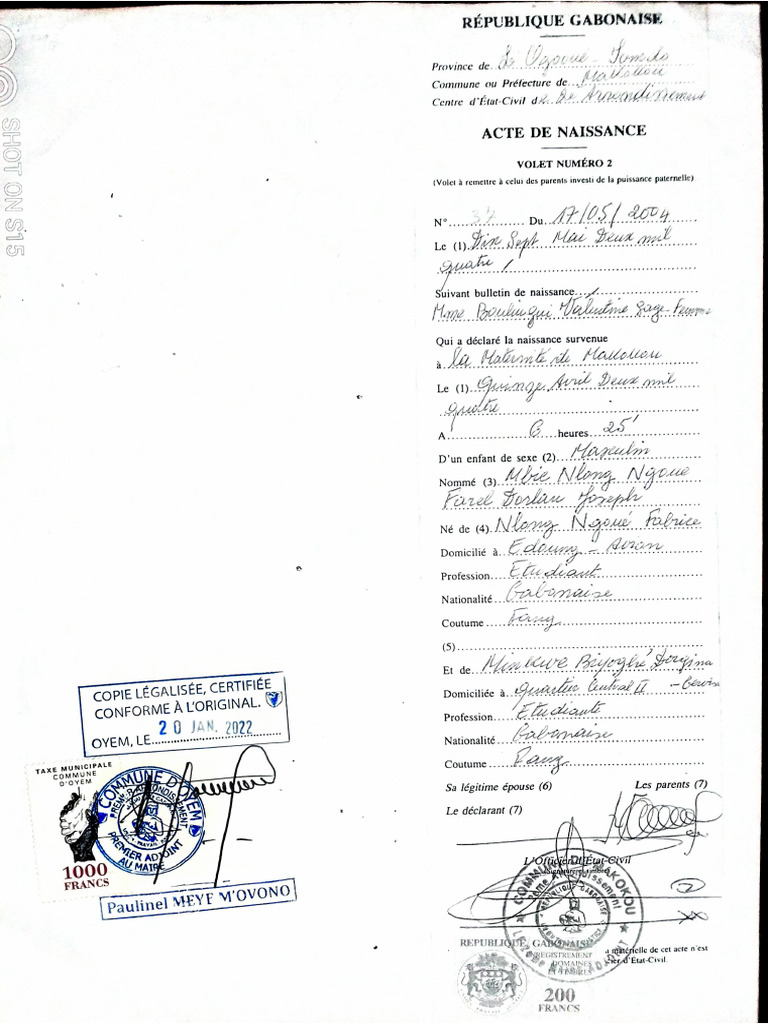 RÉPUBLIQUE GABONAISE
Province de Le Ogooué-
Commune ou Préfecture de Makokou
Centre d'État-Civil de 2e Arrondissement
ACTE DE NAISSANCE
VOLET NUMÉRO 2
(Volet à remettre à celui des parents investi de la puissance paternelle)
N° 37 Du 17/05/2004
Le (1) Dix Sept Mai Deux mil
quatre /
Suivant bulletin de naissance /
Mme Boulingui Valentine Sage-Femme
Qui a déclaré la naissance survenue
à la Maternité de Makokou
Le (1) Quinze Avril Deux mil
quatre
A 6 heures 25'
D'un enfant de sexe (2) Masculin
Nommé (3) Mbie Nlong Ngoue
Farel Dorlan Joseph
Né de (4) Nlong Ngoué Fabrice
Domicilié à Edoung - Avion
Profession Etudiant
Nationalité Gabonaise
Coutume Fang
(5)
Et de Minkwe Biyoghé
Domiciliée à Quartier Central II
Profession Etudiante
Nationalité Gabonaise
Coutume Fang
Sa légitime épouse (6) Les parents (7)
Le déclarant (7)
L'Officier d'État-Civil
COMMUNE DE MAKOKOU
2ème Arrondissement
REPUBLIQUE GABONAISE
ENREGISTREMENT
DOMAINES
ET TIMBRES
200
FRANCS
matérielle de cet acte n'est
d'État-Civil.
COPIE LÉGALISÉE, CERTIFIÉE
CONFORME À L'ORIGINAL.
OYEM, LE 20 JAN. 2022
TAXE MUNICIPALE
COMMUNE
D'OYEM
1000
FRANCS
COMMUNE D'OYEM
PREMIER ARRONDISSEMENT
PREMIER ADJOINT
AU MAIRE
Paulinel MEYE M'OVONO
SHOT ON S15